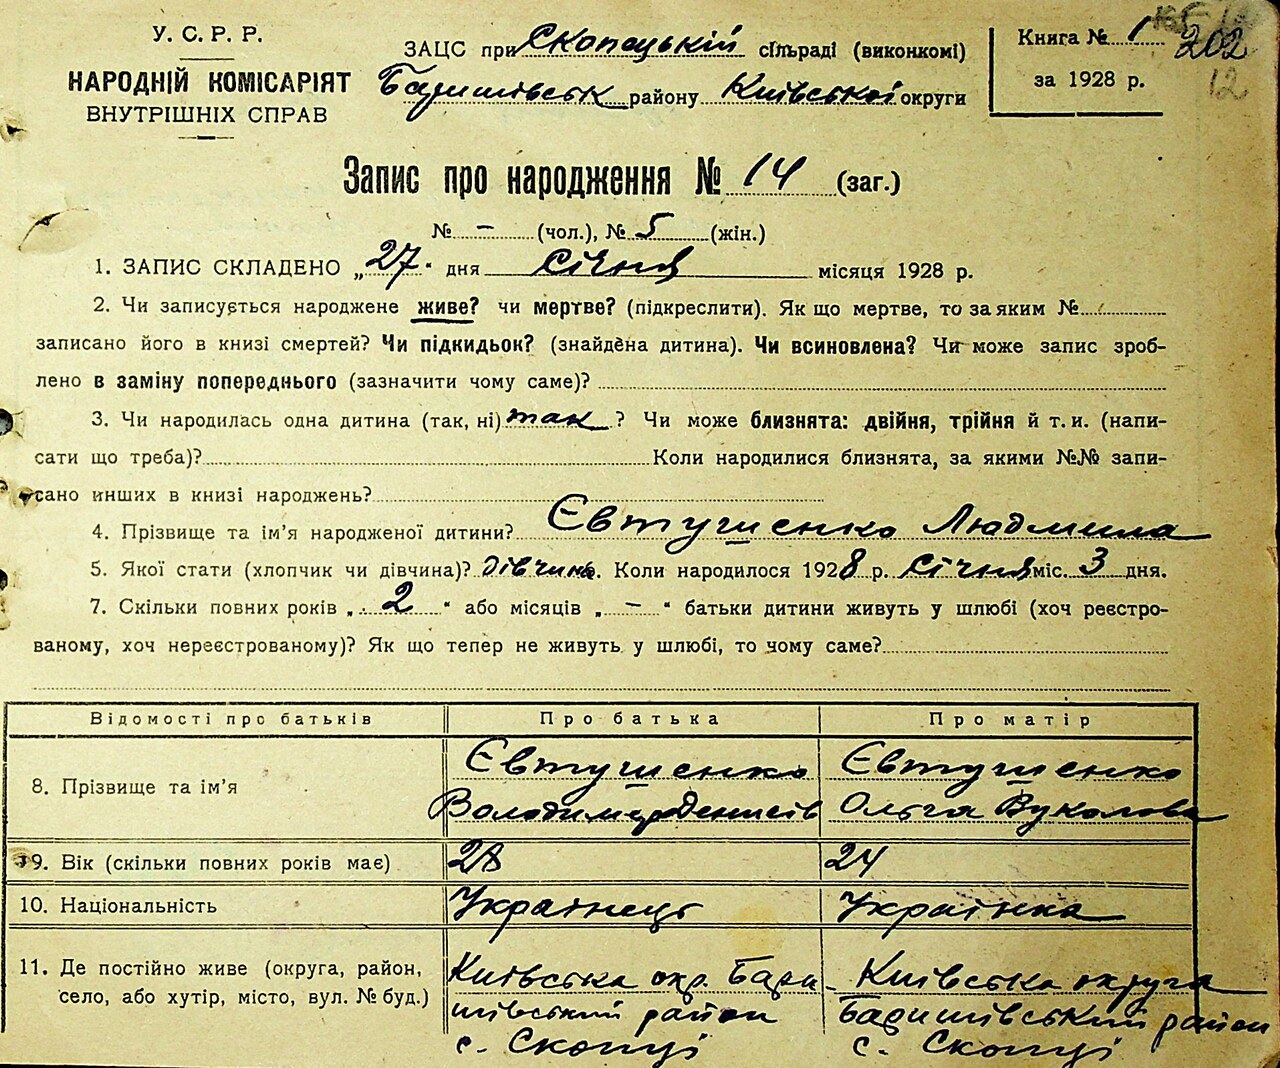 У. С. Р. Р.
НАРОДНІЙ КОМІСАРІЯТ
ВНУТРІШНІХ СПРАВ
ЗАЦС при Скопецькій сільраді (виконкомі)
Баришівськ району Київської округи
Книга № 1
за 1928 р.
202
12
Запис про народження № 14 (заг.)
№ - (чол.), № 5 (жін.)
1. ЗАПИС СКЛАДЕНО „27“ дня січня місяця 1928 р.
2. Чи записується народжене живе? чи мертве? (підкреслити). Як що мертве, то за яким №
записано його в книзі смертей? Чи підкидьок? (знайдена дитина). Чи всиновлена? Чи може запис зроб-
лено в заміну попереднього (зазначити чому саме)?
3. Чи народилась одна дитина (так, ні) так ? Чи може близнята: двійня, трійня й т. и. (напи-
сати що треба)? Коли народилися близнята, за якими №№ запи-
сано инших в книзі народжень?
4. Прізвище та ім’я народженої дитини? Євтушенко Людмила
5. Якої стати (хлопчик чи дівчина)? дівчина. Коли народилося 1928 р. січня міс. 3 дня.
7. Скільки повних років „ 2 “ або місяців „ - “ батьки дитини живуть у шлюбі (хоч реєстро-
ваному, хоч нереєстрованому)? Як що тепер не живуть у шлюбі, то чому саме?
Відомості про батьків Про батька Про матір
8. Прізвище та ім’я
Євтушенко
Володимир Денисів
Євтушенко
Ольга Вуколова
9. Вік (скільки повних років має) 28 24
10. Національність Українець Українка
11. Де постійно живе (округа, район,
село, або хутір, місто, вул. № буд.)
Київська окр. Бари-
шівський район
с. Скопці
Київська округа
Баришівський район
с. Скопці